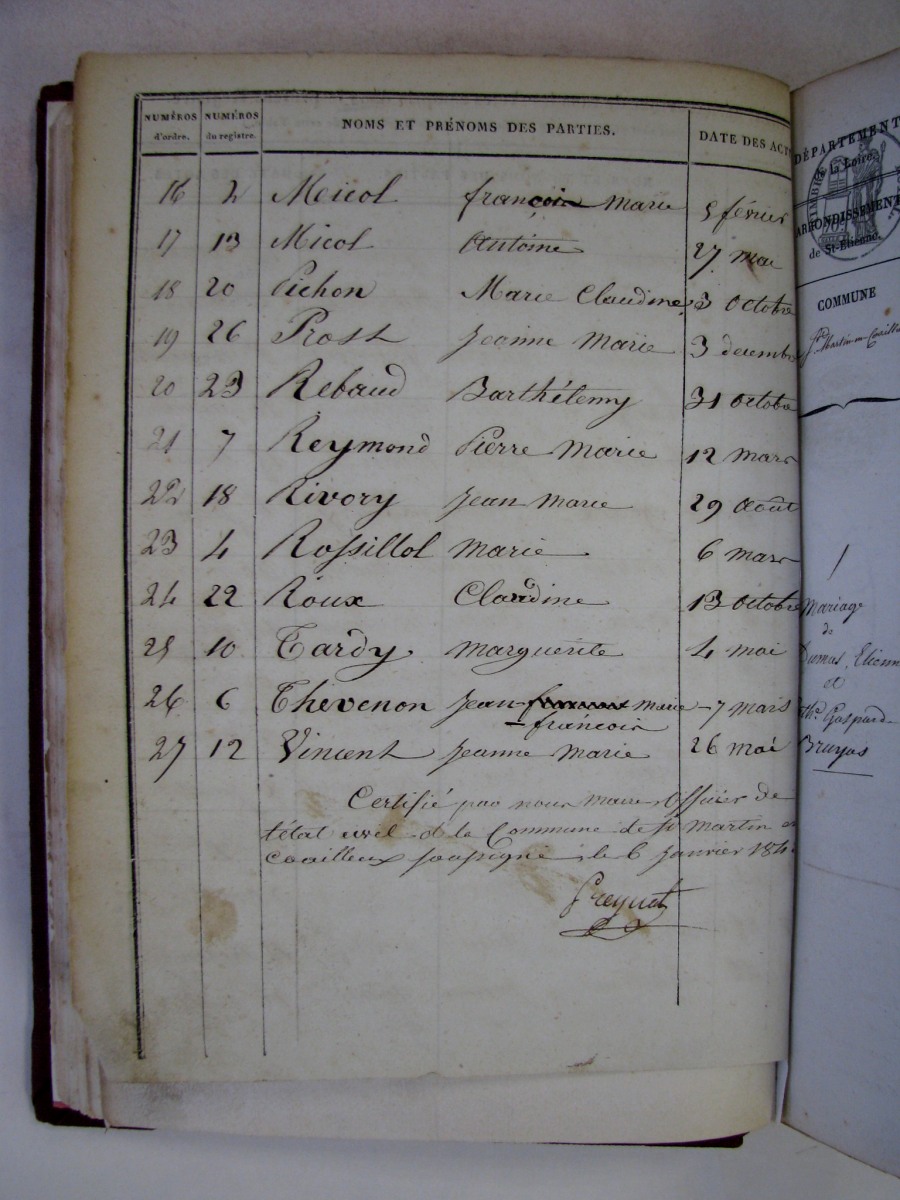 NUMÉROS d'ordre. NUMÉROS du registre. NOMS ET PRÉNOMS DES PARTIES. DATE DES ACT
16 2 Micol françois marie 5 février
17 13 Micol Antoine 27 mai
18 20 Pichon Marie Claudine 3 Octobre
19 26 Prost Jeanne Marie 3 decembre
20 23 Rebaud Barthélemy 31 octobre
21 7 Reymond Pierre Marie 12 mars
22 18 Rivory Jean marie 29 août
23 4 Rossillol marie 6 mars
24 22 Roux Claudine 13 octobre
25 10 Tardy marguerite 4 mai
26 6 Thevenon Jean marie 7 mars
francois
27 12 Vincent Jeanne marie 26 mai
Certifié par nous maire, Officier de
l'état civil de la Commune de St Martin en
Coailleux soussigné, le 6 Janvier 184
Preynat
DÉPARTEMENT
de la Loire.
ARRONDISSEMENT
de St-Étienne.
COMMUNE
St Martin en Coailleux
1
Mariage
de
Dumas, Etienne
et
Gaspard
Bruyas